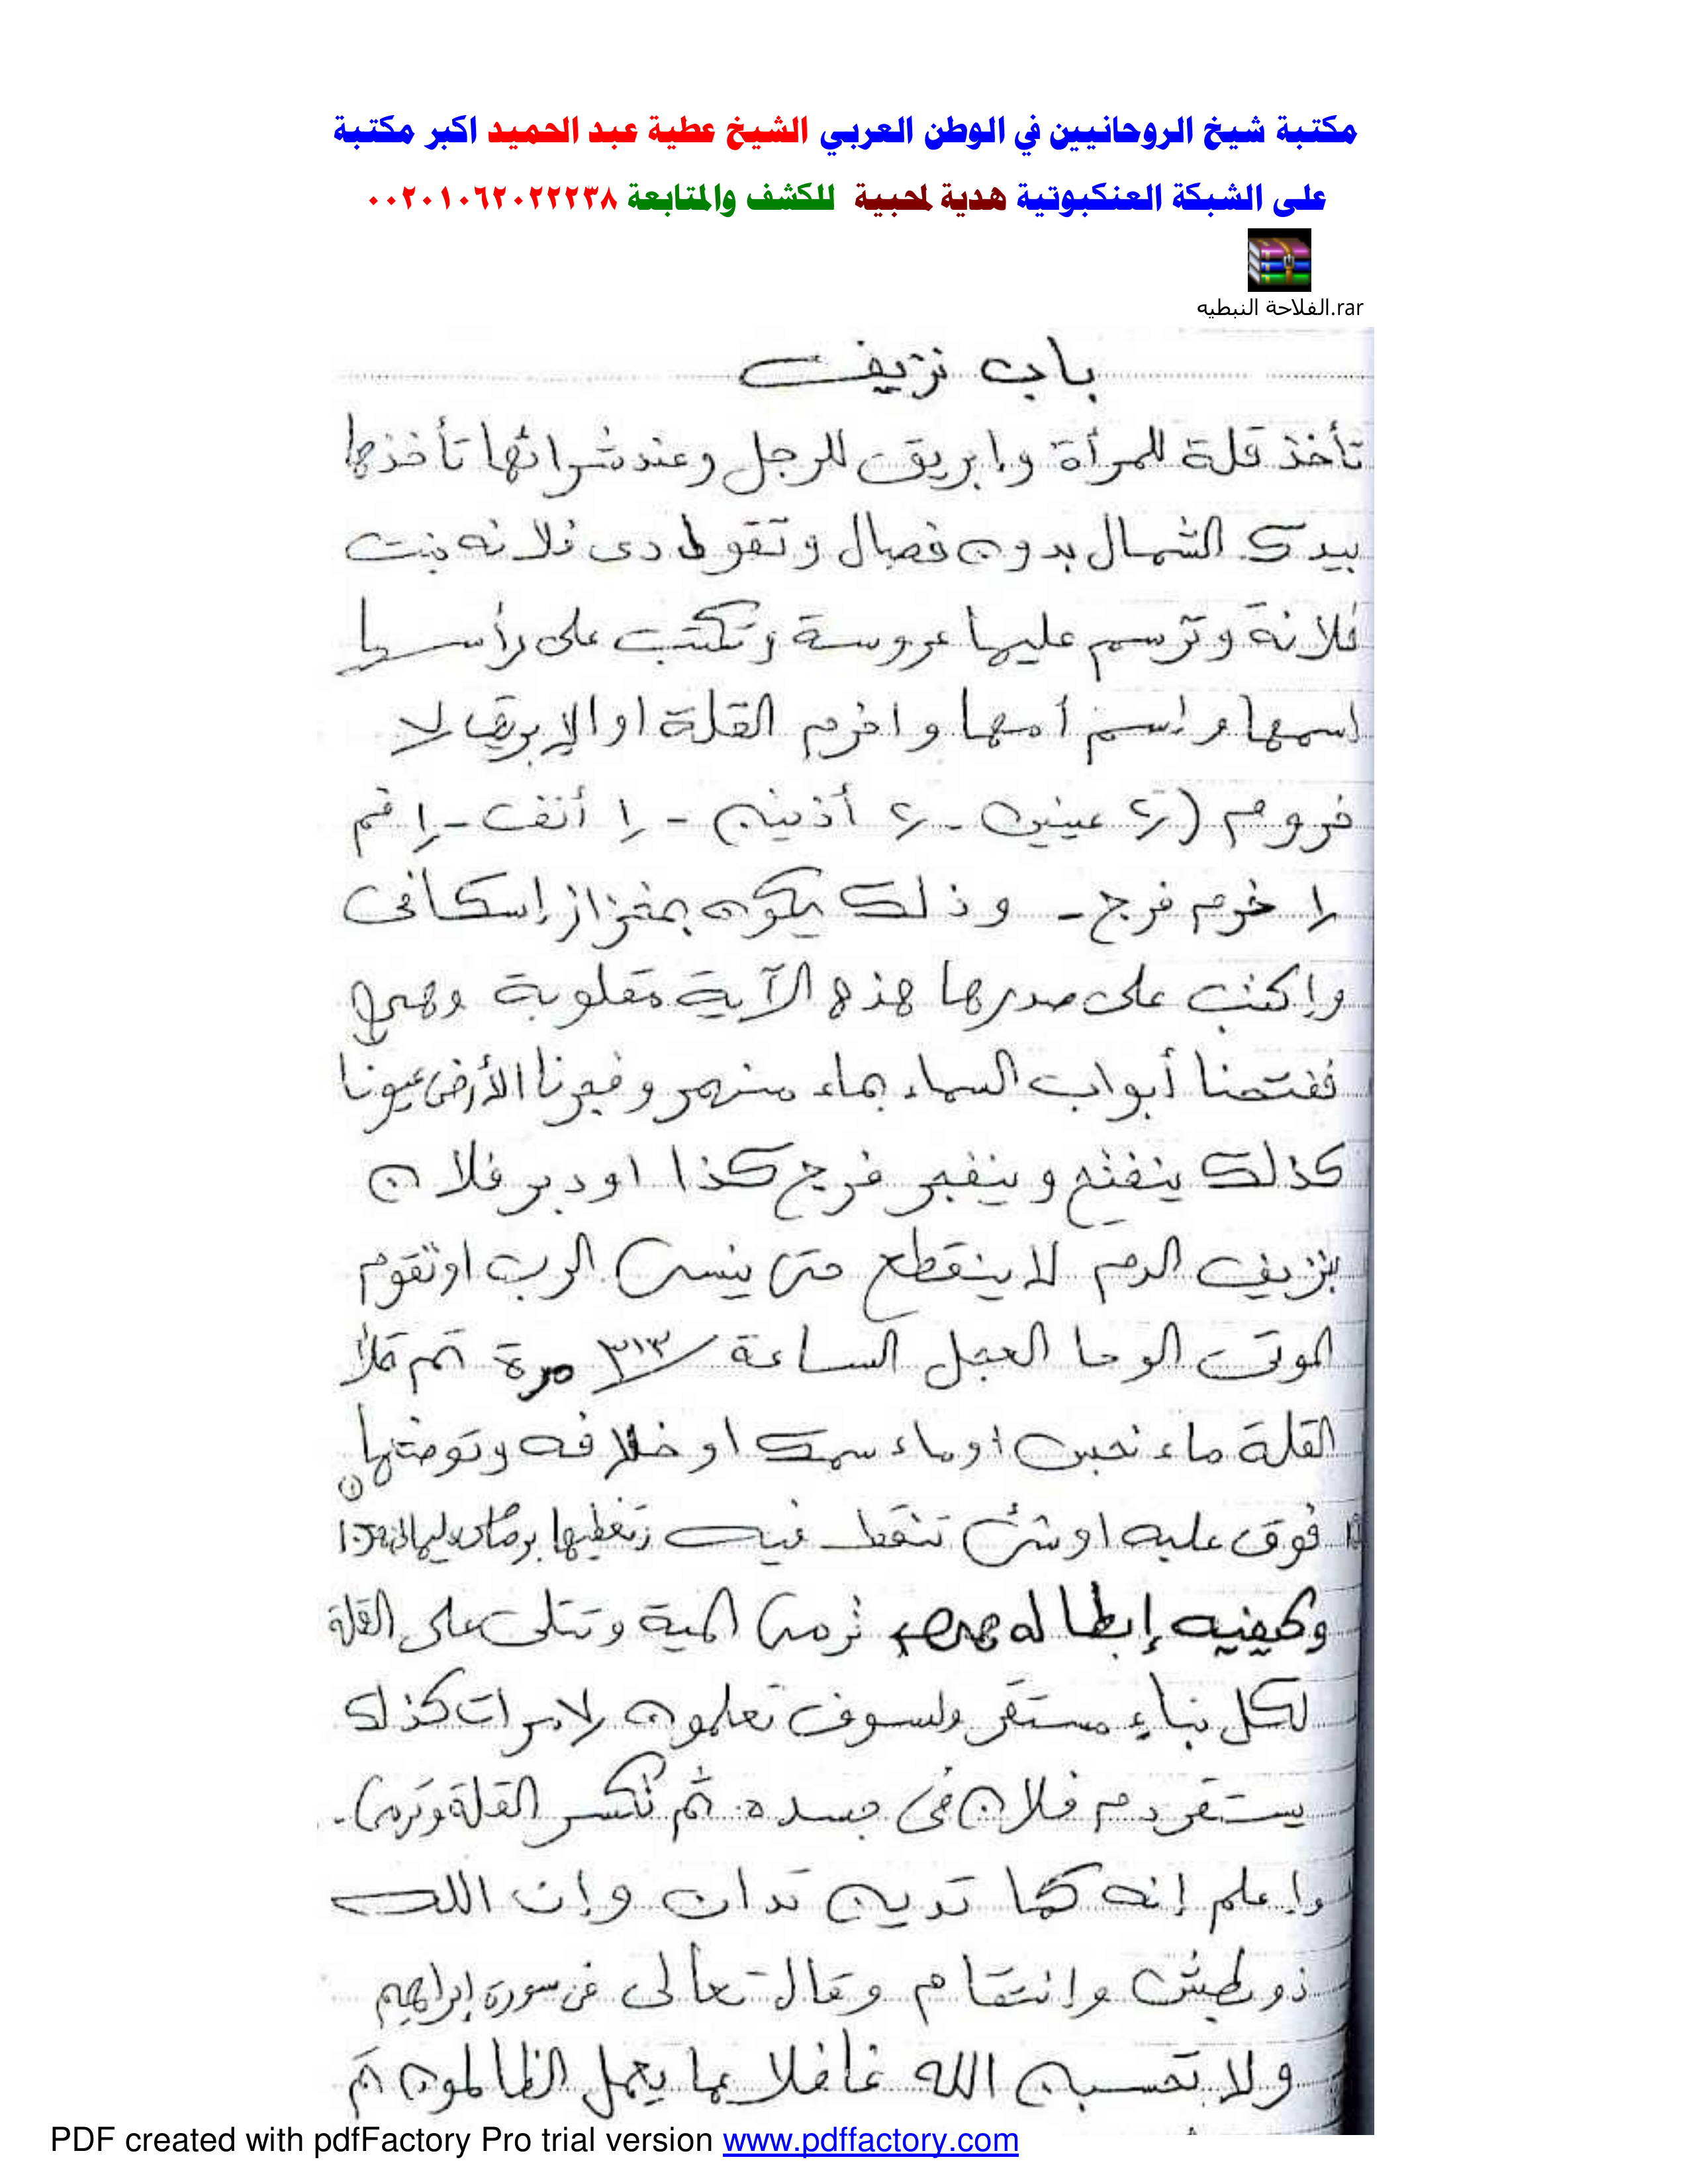 مكتبة شيخ الروحانيين في الوطن العربي الشيخ عطية عبد الحميد اكبر مكتبة
على الشبكة العنكبوتية هدية لمحبية للكشف والمتابعة ٠٠٢٠١٠٦٢٠٢٢٢٣٨
الفلاحة النبطيه.rar
باب نزيف
تأخذ قلة للمرأة وإبريق للرجل وعند شرائها تأخذها
بيدك الشمال بدون فصال وتقول دى فلانه بنت
فلانة وترسم عليها عروسة وتكتب على رأسها
اسمها واسم أمها واخرم القلة او الإبريق ٧
خروم (٢ عينين - ٢ أذنين - ١ أنف - ١ فم
١ خرم فرج - وذلك يكون بمخراز إسكافى
وإكتب على صدرها هذه الآية مقلوبة وهى
ففتحنا أبواب السماء بماء منهمر وفجرنا الأرض عيونا
كذلك ينفتح وينفجر فرج كذا او دبر فلان
بنزيف الدم لا ينقطع حتى ينسى الرب او تقوم
الموتى الوحا العجل الساعة ٣١٣ مرة ثم تملأ
القلة ماء نجس أو ماء سمك او خلافه وتوضعها
فوق علبه او شئ تنقط فيه وتغطيها
وكيفيه إبطاله ترمى المية وتتلى على القلة
لكل نباءٍ مستقر ولسوف تعلمون ٧ مرات كذلك
يستقر دم فلان فى جسده ثم تكسر القلة وترمى .
وإعلم إنه كما تدين تدان وإن الله
ذو بطش وإنتقام وقال تعالى فى سورة إبراهيم
ولا تحسبن الله غافلا عما يعمل الظالمون ثم
PDF created with pdfFactory Pro trial version www.pdffactory.com